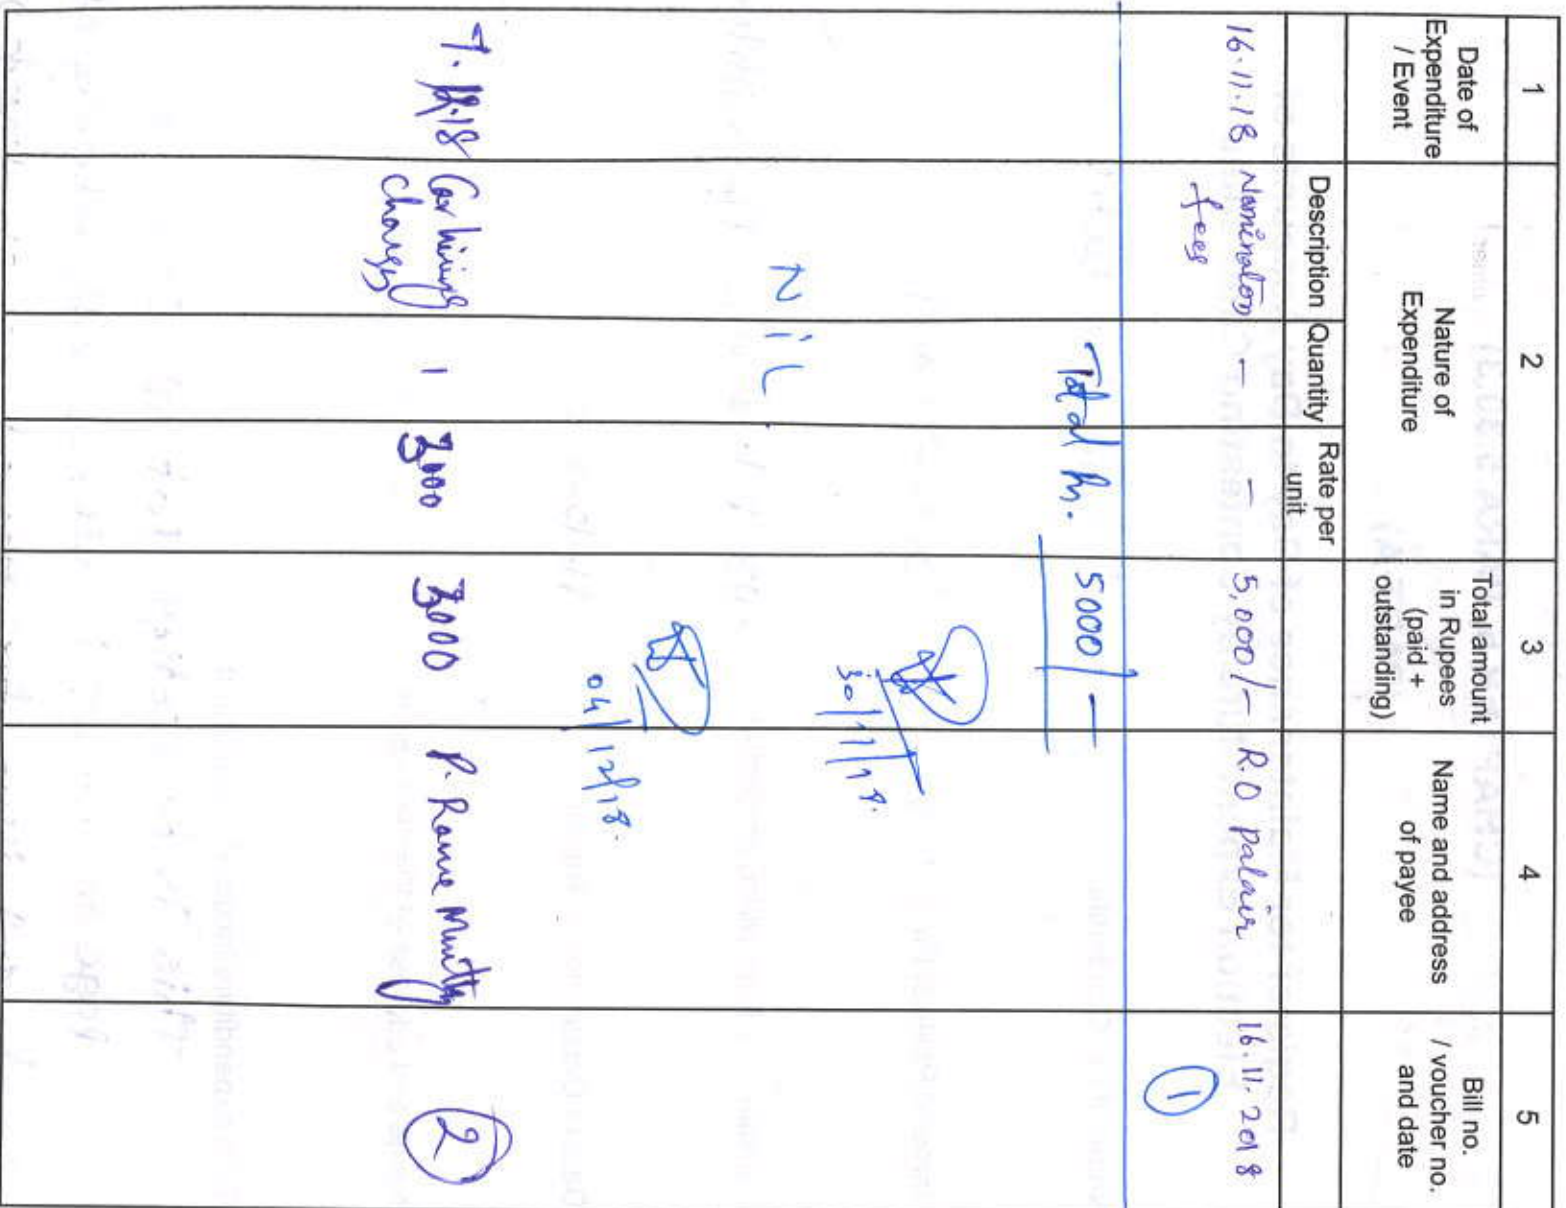 1 2 3 4 5
Date of Expenditure / Event
Nature of Expenditure
Total amount in Rupees (paid + outstanding)
Name and address of payee
Bill no. / voucher no. and date
Description Quantity Rate per unit
16.11.18 Nomination fees - - 5,000/- R.O Palair 16.11.2018
1
Total Rs. 5000/-
30/11/18.
Nil
04/12/18.
7.12.18 Car hiring charges 1 3000 3000 P. Rama Murthy 2